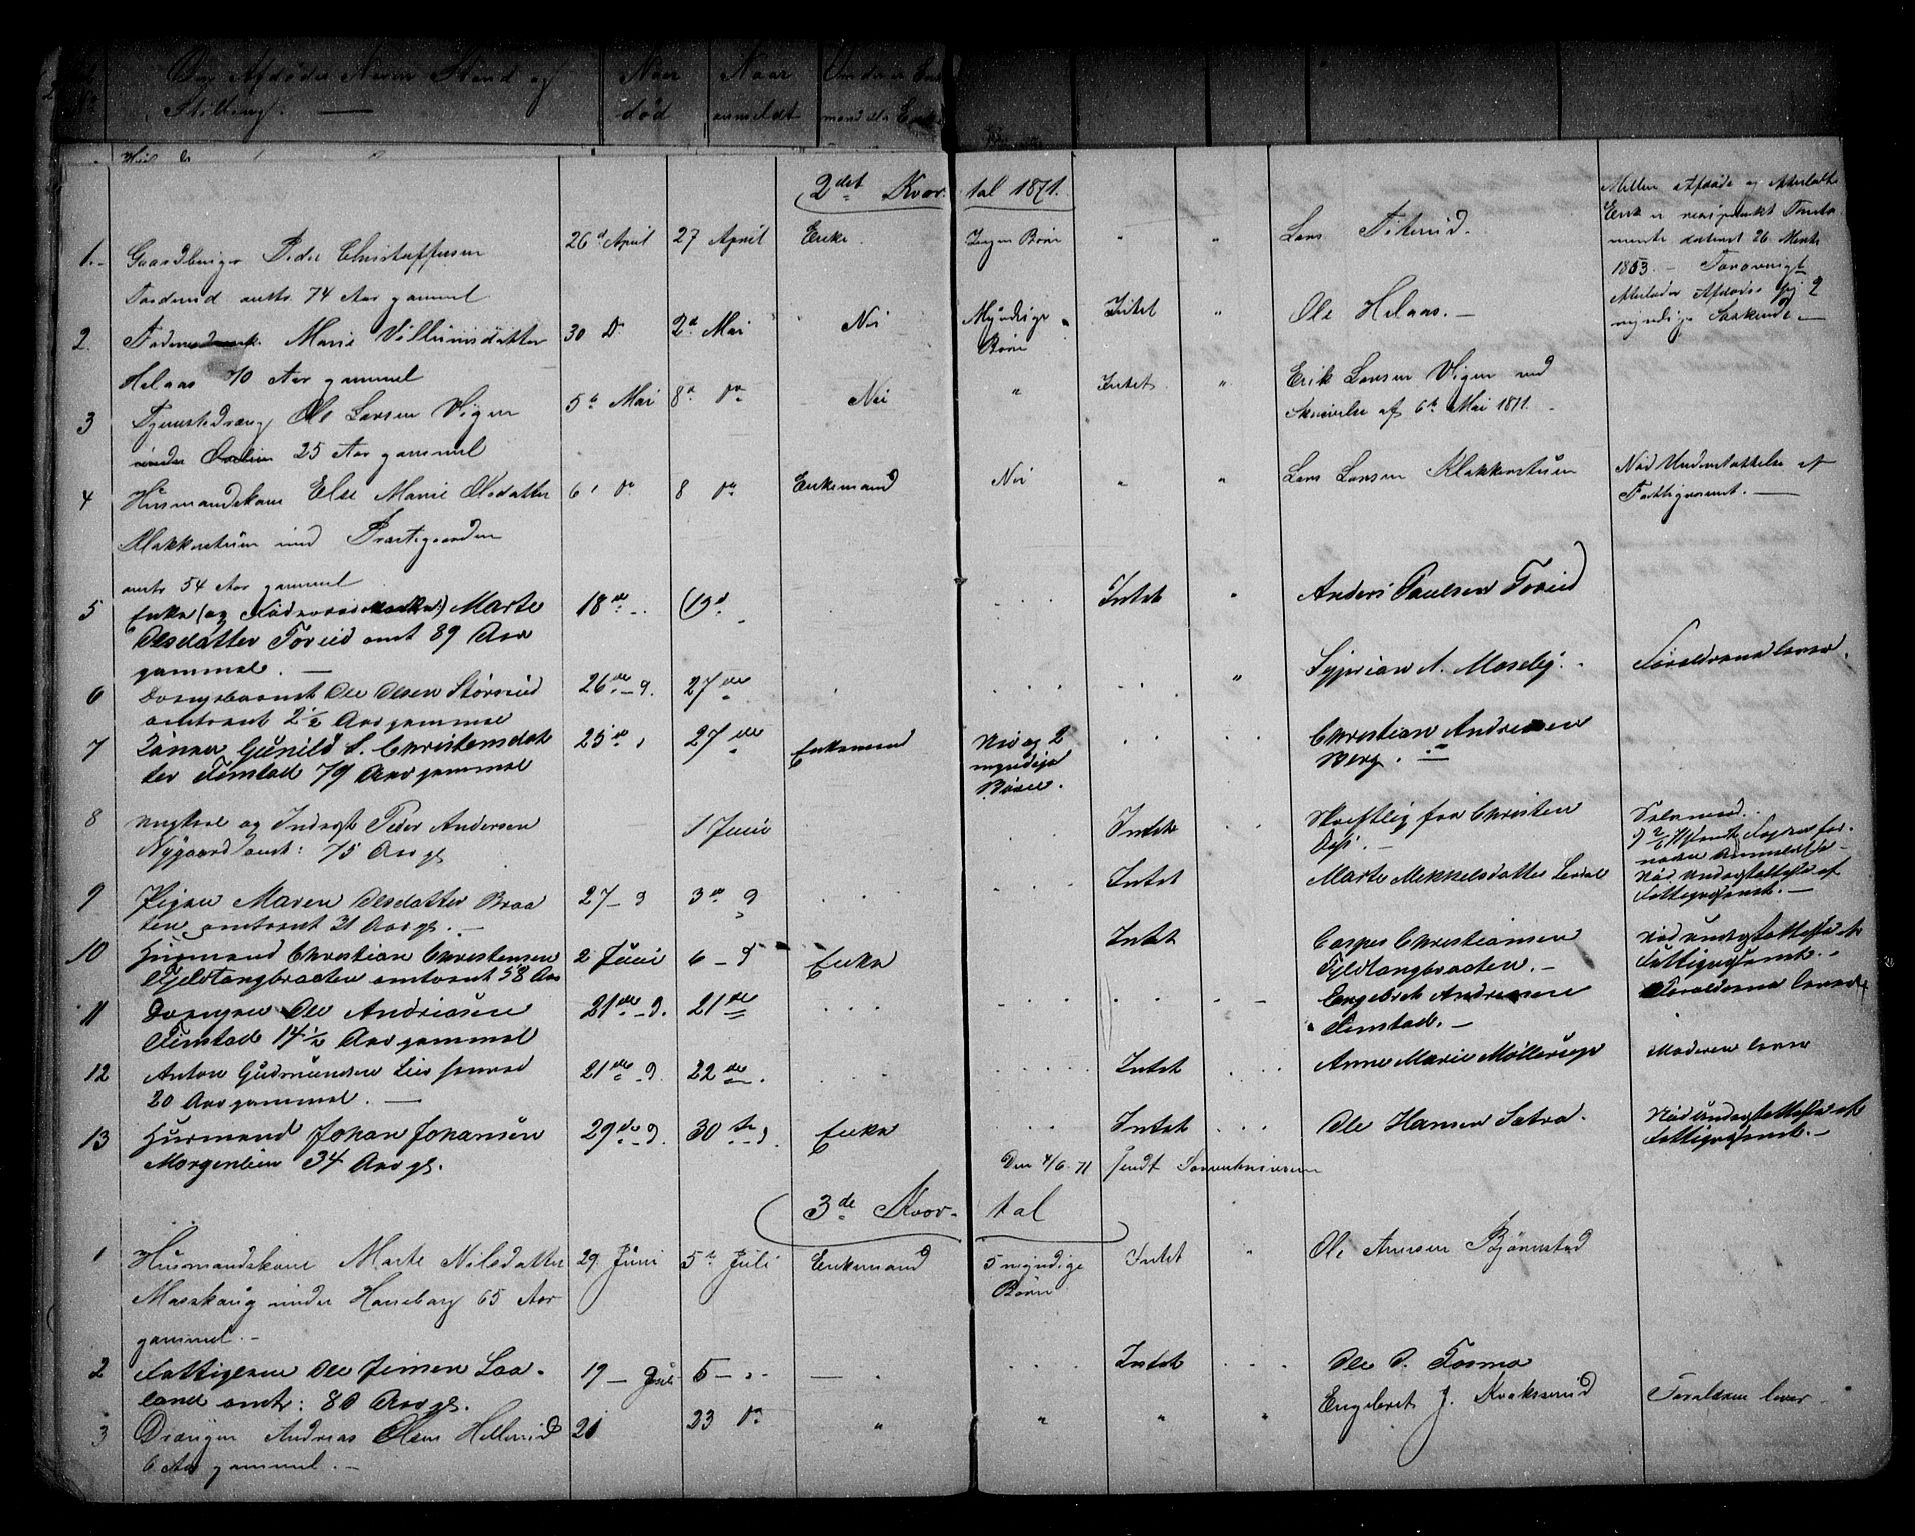 Den Afdødes Navn Stand og
Stilling. —
Naar
død
Naar
anmeldt
2det Kvar-
tal 1871.
1. Gaardbruger Peder Christoffersen
anstr. 74 Aar gammel
26 d April
27 April
Enke.
Ingen Børn
"
"
Lars
Mellem Afdøde og Efterladte
Enke er
dateret 26 Marts
1853. —
Efterlader Afdøde sig 2
myndige
2. Marie Villumsdatter
Helaas 70 Aar gammel
30 D
2d Mai
Nei
Myndige
Børn
Intet
"
Ole Helaas. —
3 Tjenestedreng Ole Larsen Vigen
under 25 Aar gammel
5te Mai
8de Do
Nei
"
Intet
"
Erik Larsen Vigen ved
Skrivelse af 6te Mai 1871.
4 Husmandskone Else Marie Olsdatter
Klakkerstuen und Præstegaarden
anstr 54 Aar gammel
6 Do
8 Do
Enkemand
Nei
"
"
Lars Larsen Klakkerstuen
Nød Understøttelse af
Fattigvæsenet. —
5 Enke (og Marte
Olsdatter Toverud omt 89 Aar
gammel. —
18de
19d
Intet
"
Anders Paulsen Toverud
6 Drengebarnet Ole Olsen Størsrud
omtrent 2½ Aar gammel
26de - d.
27de
"
Syprian A. Moseby. -
Forældrene lever.
7 Gunild S. Christensdat
ter Finstad 79 Aar gammel
25de
27de
Enkemand
Nei og 2
myndige
Børn.
Christian Andresen
Berg. —
8 Ungkarl og Inderst Peder Andersen
Nygaard omt: 75 Aar gl
1 Juni
Intet
Skriftlig fra Christen
9 Pigen Maren Olsdatter Braa
ten omtrent 31 Aar gl. —
27 - d
3de d
Intet
Marte Mekkelsdatter
Nød Understøttelse af
Fattigvæsenet. —
10 Husmand Christian Christensen
Fjeldtangbraaten omtrent 58 Aar
2 Juni
6 - d
Enke
Intet
Casper Christiansen
Fjeldtangbraaten. —
Nød Understøttelse af
Fattigvæsenet. —
11 Drengen Ole Andriasen
Finstad 14½ Aar gammel
21de - d.
21de
Engebret Andresen
Finstad. —
Forældrene lever
12 Anton Gudmundsen
20 Aar gammel. —
21de - d.
22de.
Intet
Anne Marie Møllerup
Moderen lever
13 Husmand Johan Johansen
Morgenlien 34 Aar gl.
29de - d.
30te d
Enke
Intet
Ole Hansen Sætra.
Nød Understøttelse af
Fattigvæsenet. —
Den 4/6. 71 sendt Sorenskriveren
3de Kvar-
tal
1 Husmandskone Marte Nilsdatter
Masskaug under Haneborg 65 Aar
gammel. -
29. Juni
5te Juli
Enkemand
5 myndige
Børn
Intet
"
Ole Arnesen Bjønnstad
2 Ole Jensen Laa-
land omtr: 80 Aar gl.
19 - Juli
5 -
Intet
Ole O. Tosmo
3 Drengen Andreas Olsen Hellerud
6 Aar gammel. —
21
23 Do
"
"
"
"
Engebret J. Krokserud
Forældrene lever